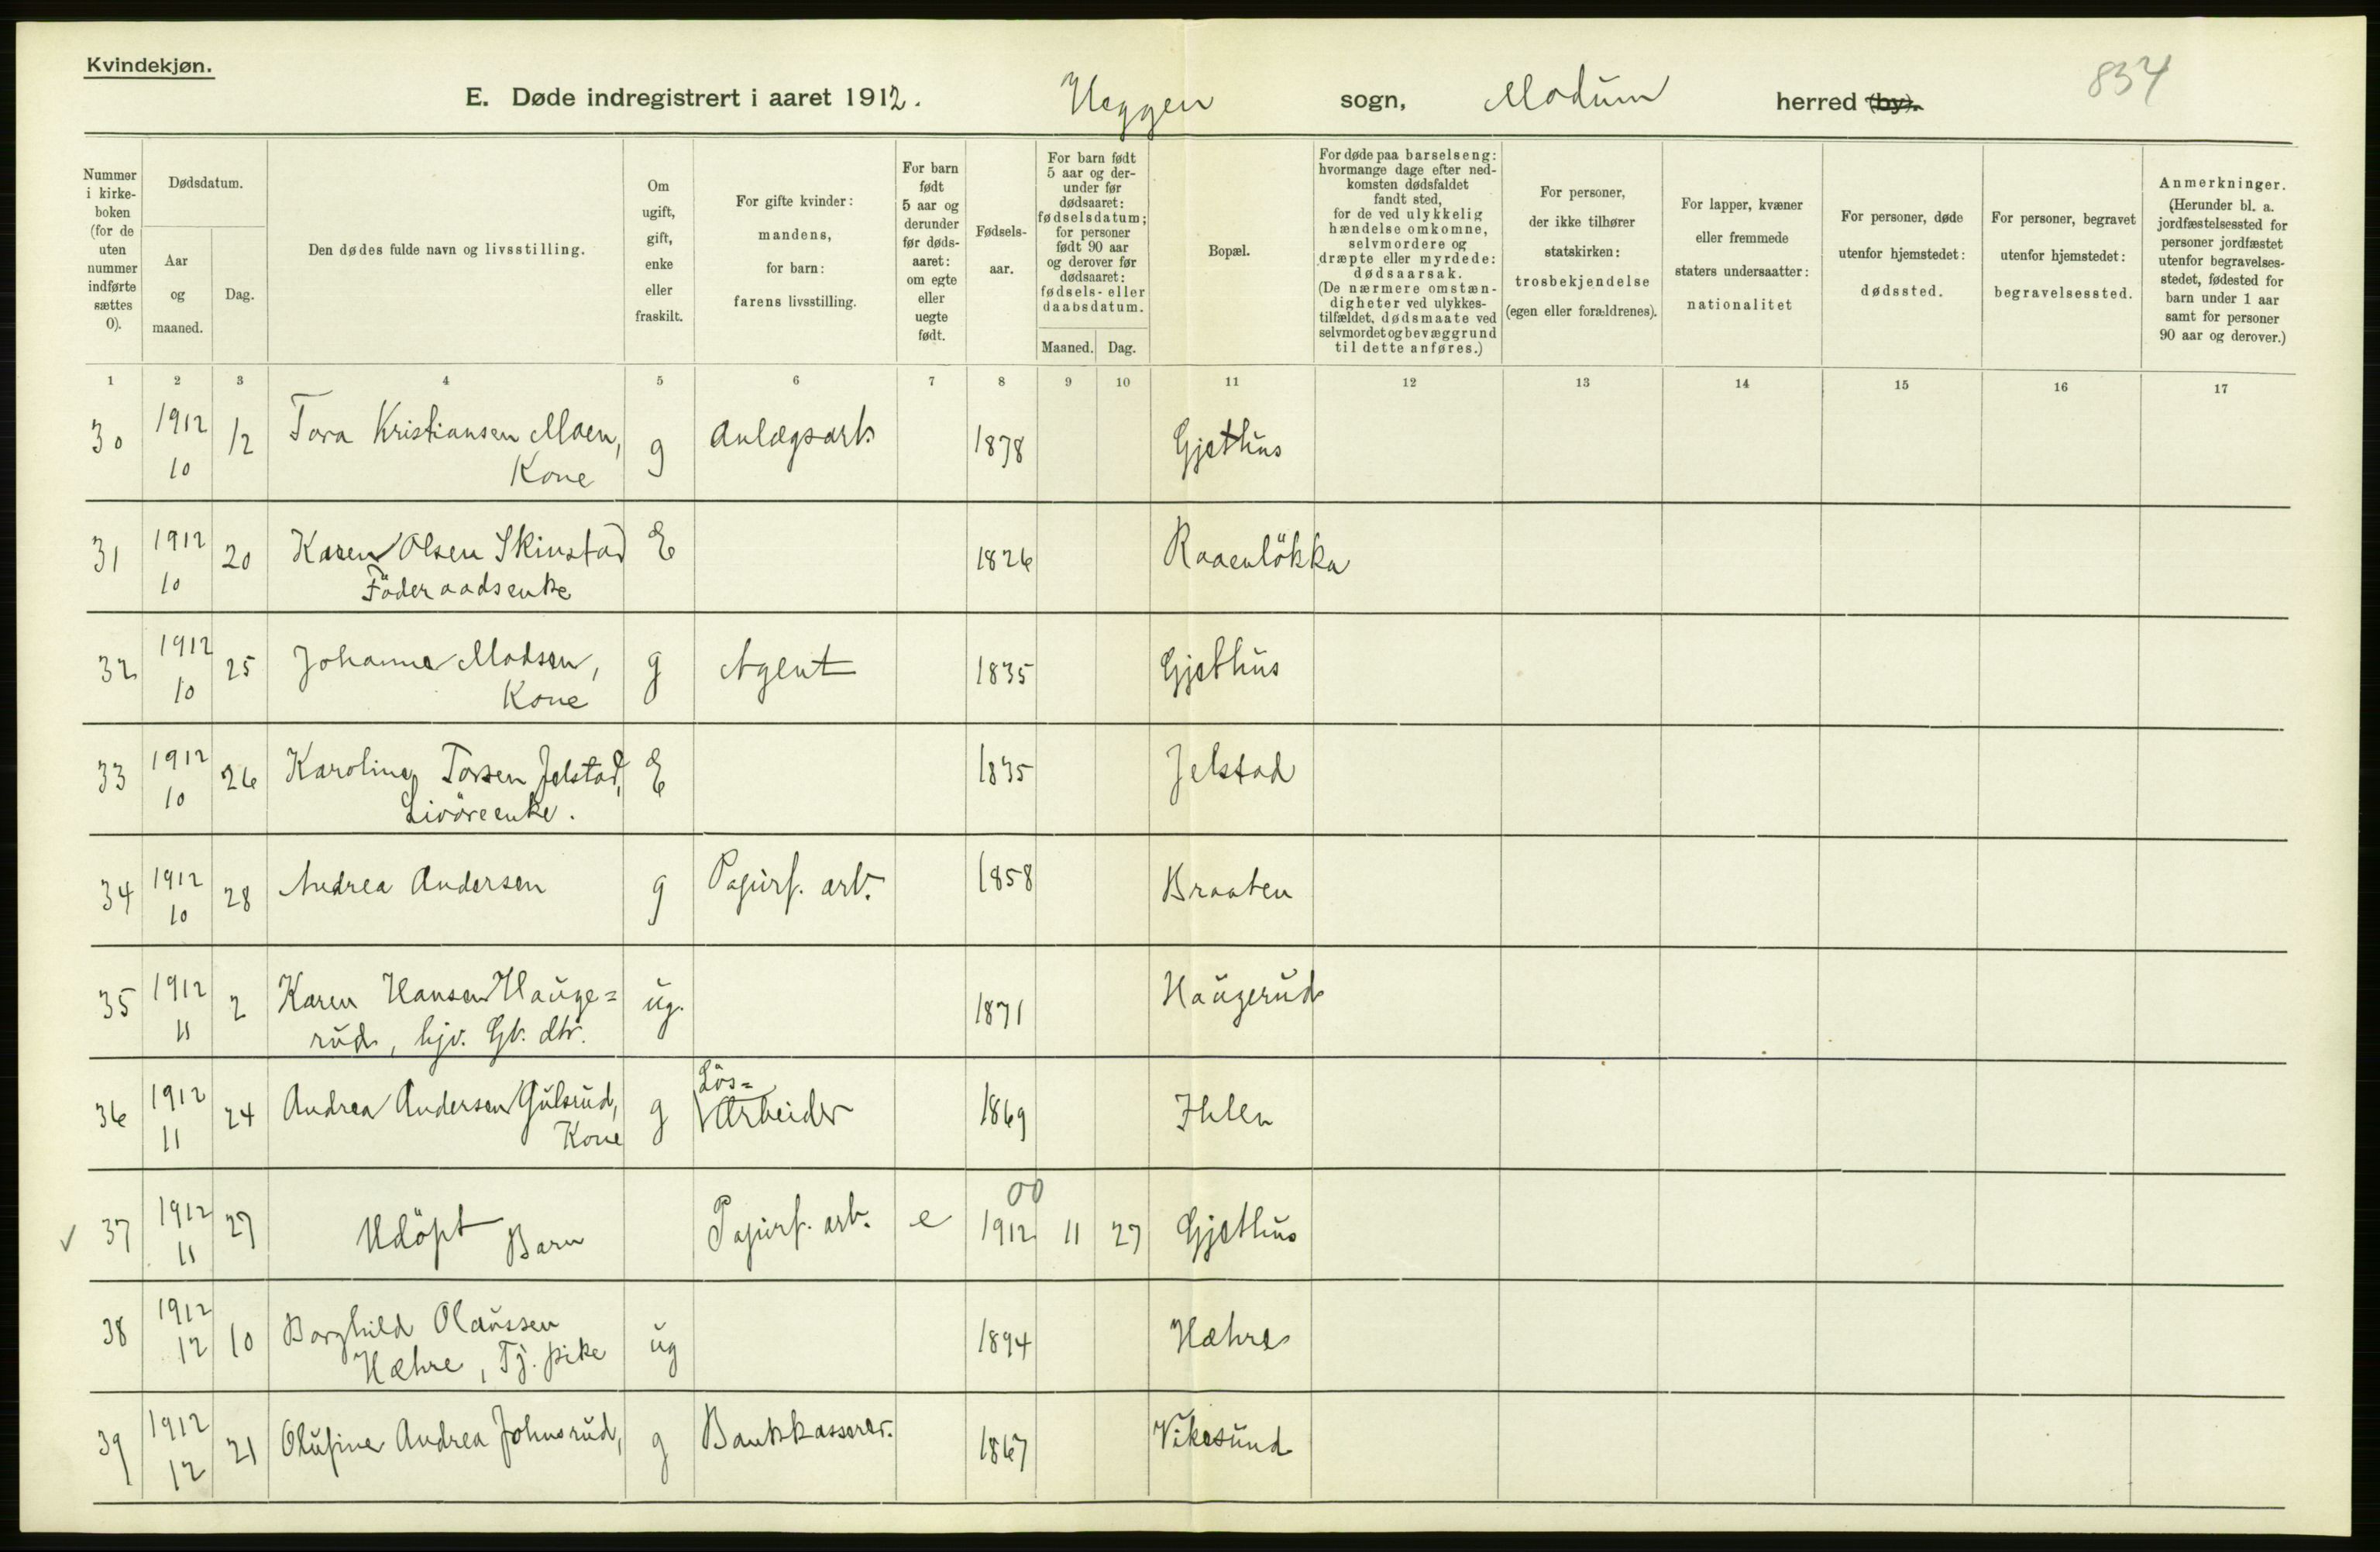 Kvindekjøn.
E. Døde indregistrert i aaret 1912. Heggen sogn, Modum herred (by).
834
Nummer i kirkeboken (for de uten nummer indførte sættes 0).
Dødsdatum.
Aar og maaned.
Dag.
Den dødes fulde navn og livsstilling.
Om ugift, gift, enke eller fraskilt.
For gifte kvinder: mandens, for barn: farens livsstilling.
For barn født 5 aar og derunder før dødsaaret: om egte eller uegte født.
Fødselsaar.
For barn født 5 aar og derunder før dødsaaret: fødselsdatum; for personer født 90 aar og derover før dødsaaret: fødsels- eller daabsdatum.
Maaned. Dag.
Bopæl.
For døde paa barselseng: hvormange dage efter nedkomsten dødsfaldet fandt sted, for de ved ulykkelig hændelse omkomne, selvmordere og dræpte eller myrdede: dødsaarsak. (De nærmere omstændigheter ved ulykkestilfældet, dødsmaate ved selvmordet og bevæggrund til dette anføres.)
For personer, der ikke tilhører statskirken: trosbekjendelse (egen eller forældrenes).
For lapper, kvæner eller fremmede staters undersaatter: nationalitet
For personer, døde utenfor hjemstedet: dødssted.
For personer, begravet utenfor hjemstedet: begravelsessted.
Anmerkninger. (Herunder bl. a. jordfæstelsessted for personer jordfæstet utenfor begravelsesstedet, fødested for barn under 1 aar samt for personer 90 aar og derover.)
1 2 3 4 5 6 7 8 9 10 11 12 13 14 15 16 17
30 1912 10 12 Tora Kristiansen Moen, Kone g Anlægsarb. 1878 Gjethus
31 1912 10 20 Karen Olsen Skinstad Föderaadsenke E 1826 Raaenlökka
32 1912 10 25 Johanne Madsen, Kone g Agent 1835 Gjethus
33 1912 10 26 Karoline Torsen Jelstad, Livöreenke. E 1835 Jelstad
34 1912 10 28 Andrea Andersen g Papirf. arb. 1858 Braaten
35 1912 11 2 Karen Hansen Hauge= rud, hjv. Gb. dtr. ug. 1871 Haugerud
36 1912 11 24 Andrea Andersen Gulsrud, Kone g Lös= Arbeider 1869 Ihlen
✓ 37 1912 11 27 Udöpt Barn Papirf. arb. e 00 1912 11 27 Gjethus
38 1912 12 10 Borghild Olaussen Hæhre, Tj. pike ug 1894 Hæhre
39 1912 12 21 Olufine Andrea Johnsrud, g Bankkasserer. 1867 Vikesund